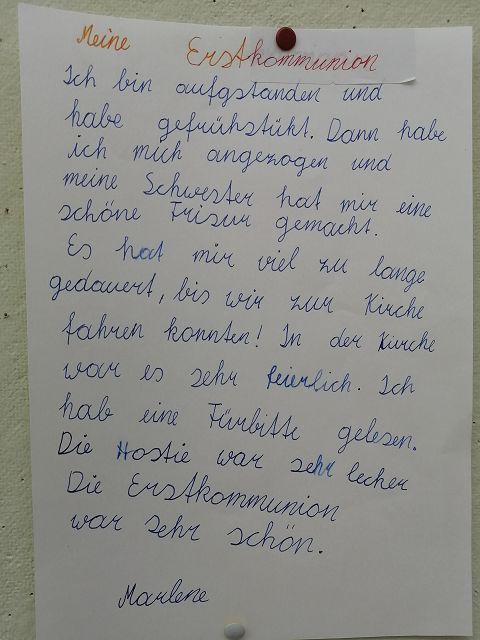 Meine Erstkommunion
Ich bin aufgstanden und
habe gefrühstükt. Dann habe
ich mich angezogen und
meine Schwester hat mir eine
schöne Frisur gemacht.
Es hat mir viel zu lange
gedauert, bis wir zur Kirche
fahren konnten! In der Kirche
war es sehr feierlich. Ich
hab eine Fürbitte gelesen.
Die Hostie war sehr lecher
Die Erstkommunion
war sehr schön.
Marlene